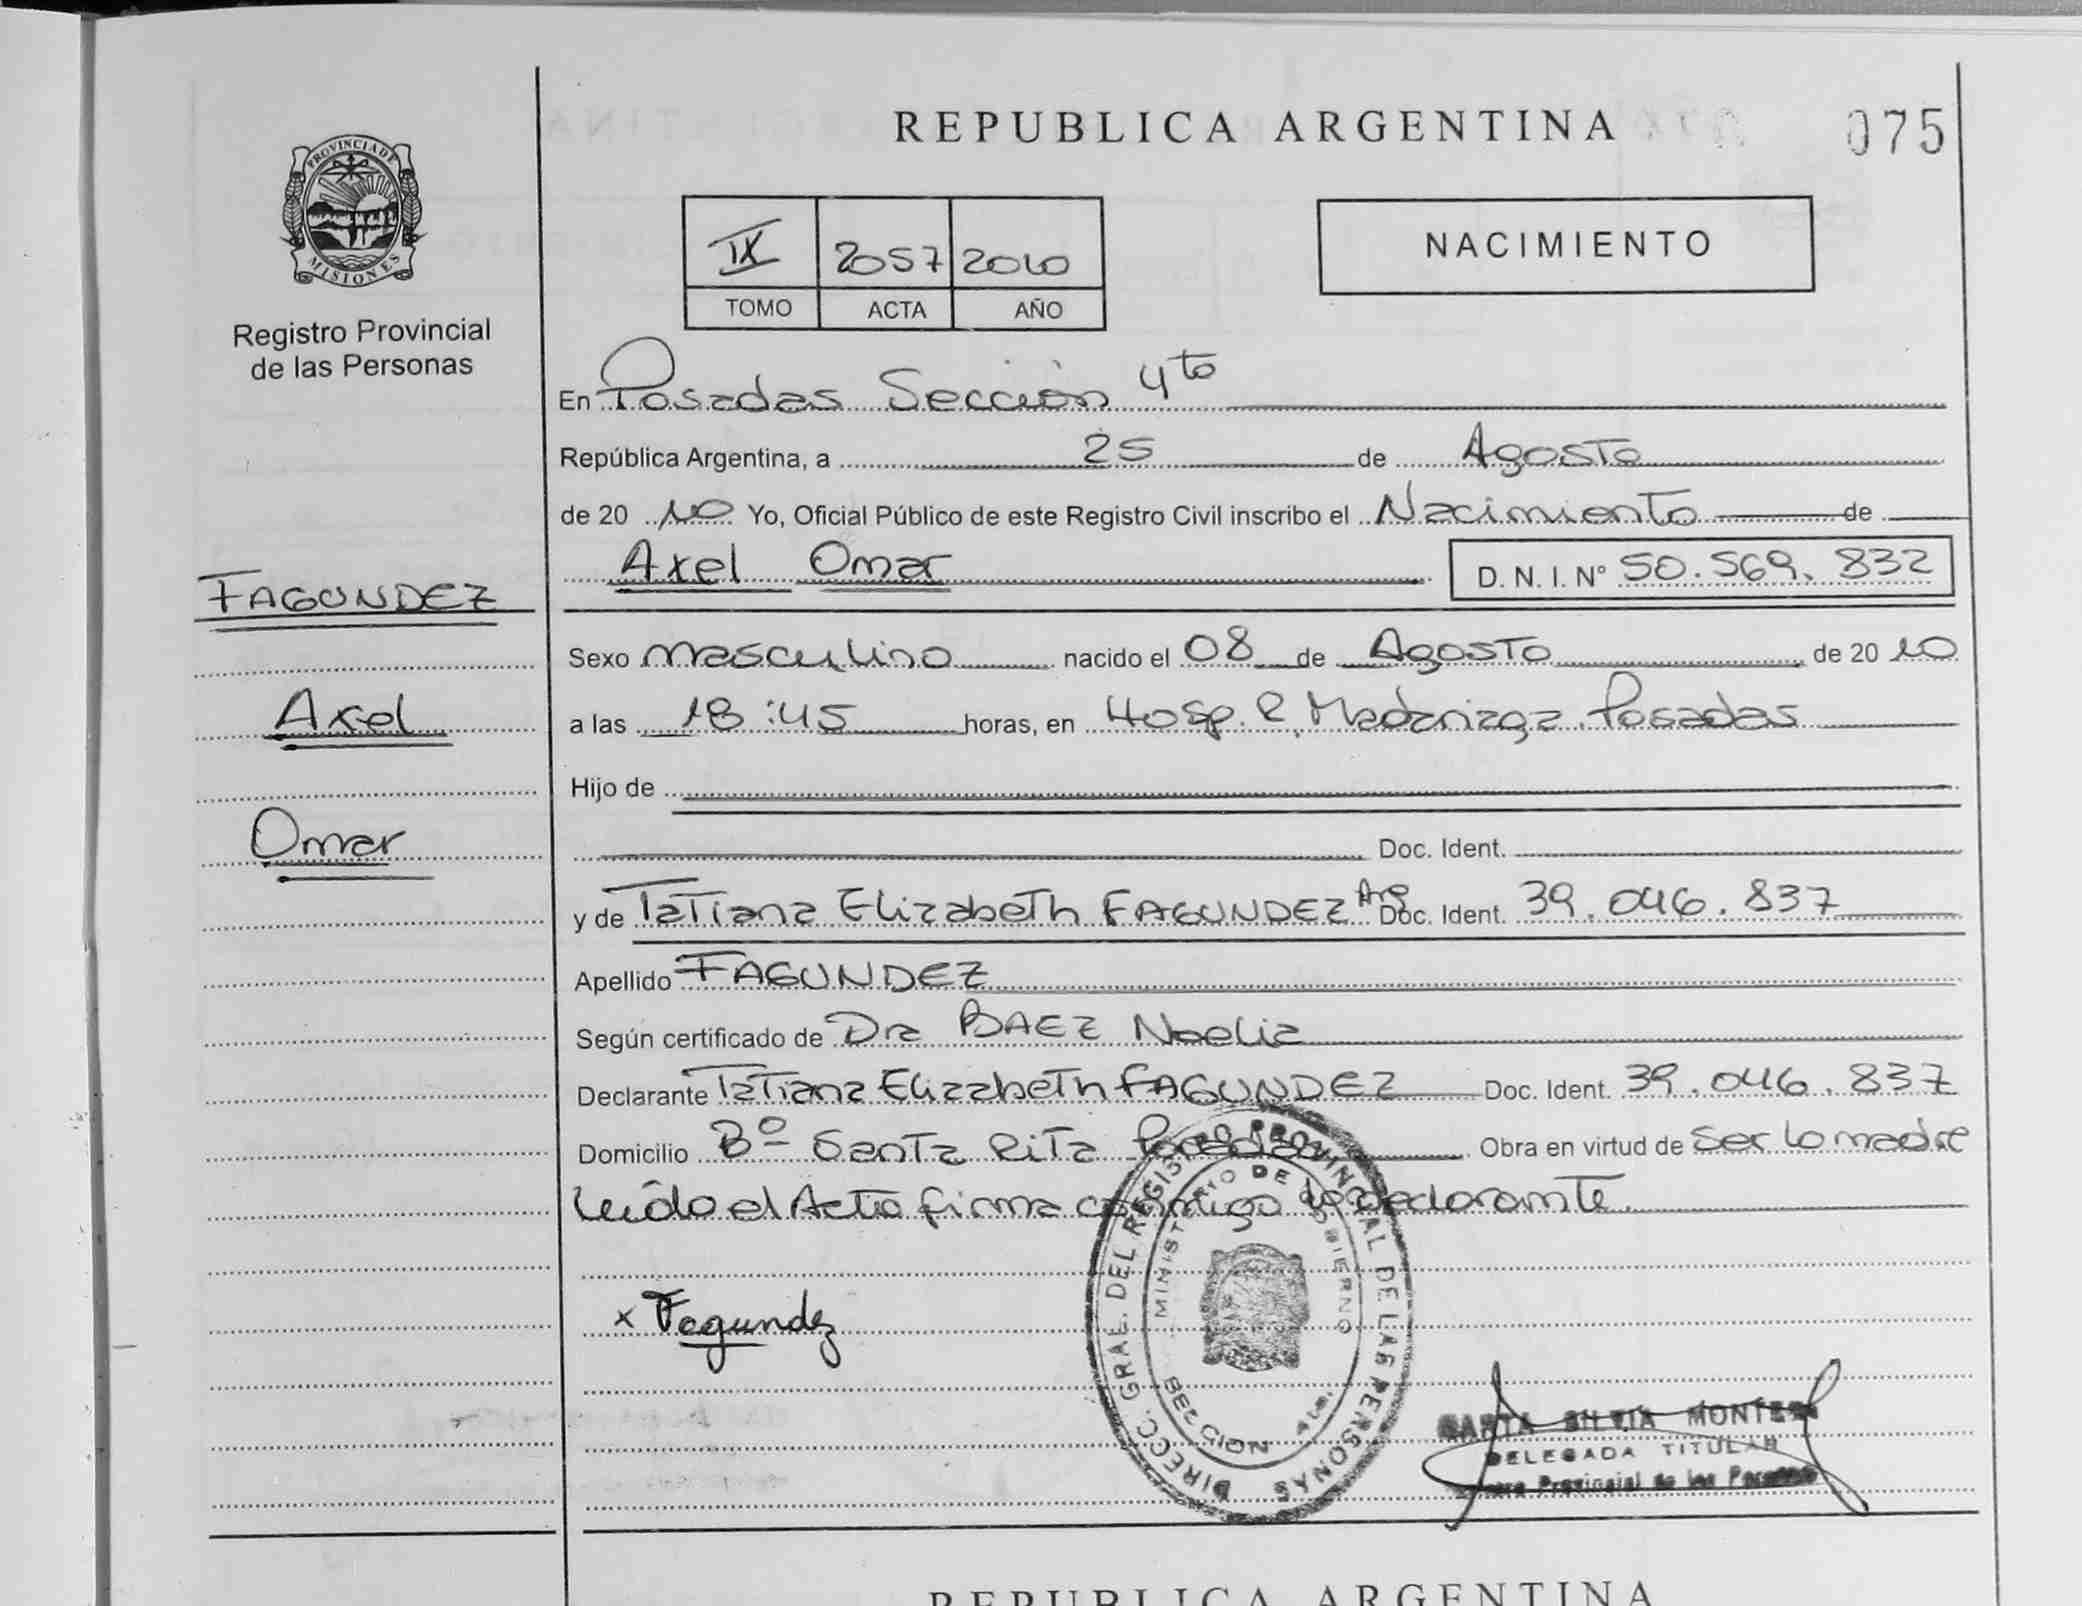 REPUBLICA ARGENTINA
075
PROVINCIA DE
MISIONES
Registro Provincial
de las Personas
IX 2057 2010
TOMO ACTA AÑO
NACIMIENTO
En Posadas Sección 4to
República Argentina, a 25 de Agosto
de 20 10 Yo, Oficial Público de este Registro Civil inscribo el Nacimiento de
Axel Omar D. N. I. N° 50.569.832
FAGUNDEZ
Axel
Omar
Sexo masculino nacido el 08 de Agosto de 20 10
a las 18:45 horas, en Hosp. R. Madariaga Posadas
Hijo de
Doc. Ident.
y de Tatiana Elizabeth FAGUNDEZ Arg Doc. Ident. 39.046.837
Apellido FAGUNDEZ
Según certificado de Dra BAEZ Noelia
Declarante Tatiana Elizabeth FAGUNDEZ Doc. Ident. 39.046.837
Domicilio Bº Santa Rita Posadas Obra en virtud de Ser la madre
Leída el Acta firma conmigo la declarante
x Fagundez
DIRECC. GRAL. DEL REGISTRO PROVINCIAL DE LAS PERSONAS
MINISTERIO DE GOBIERNO
SECCION 4ta.
SILVIA MONTERO
DELEGADA TITULAR
Provincial de las Personas
REPUBLICA ARGENTINA